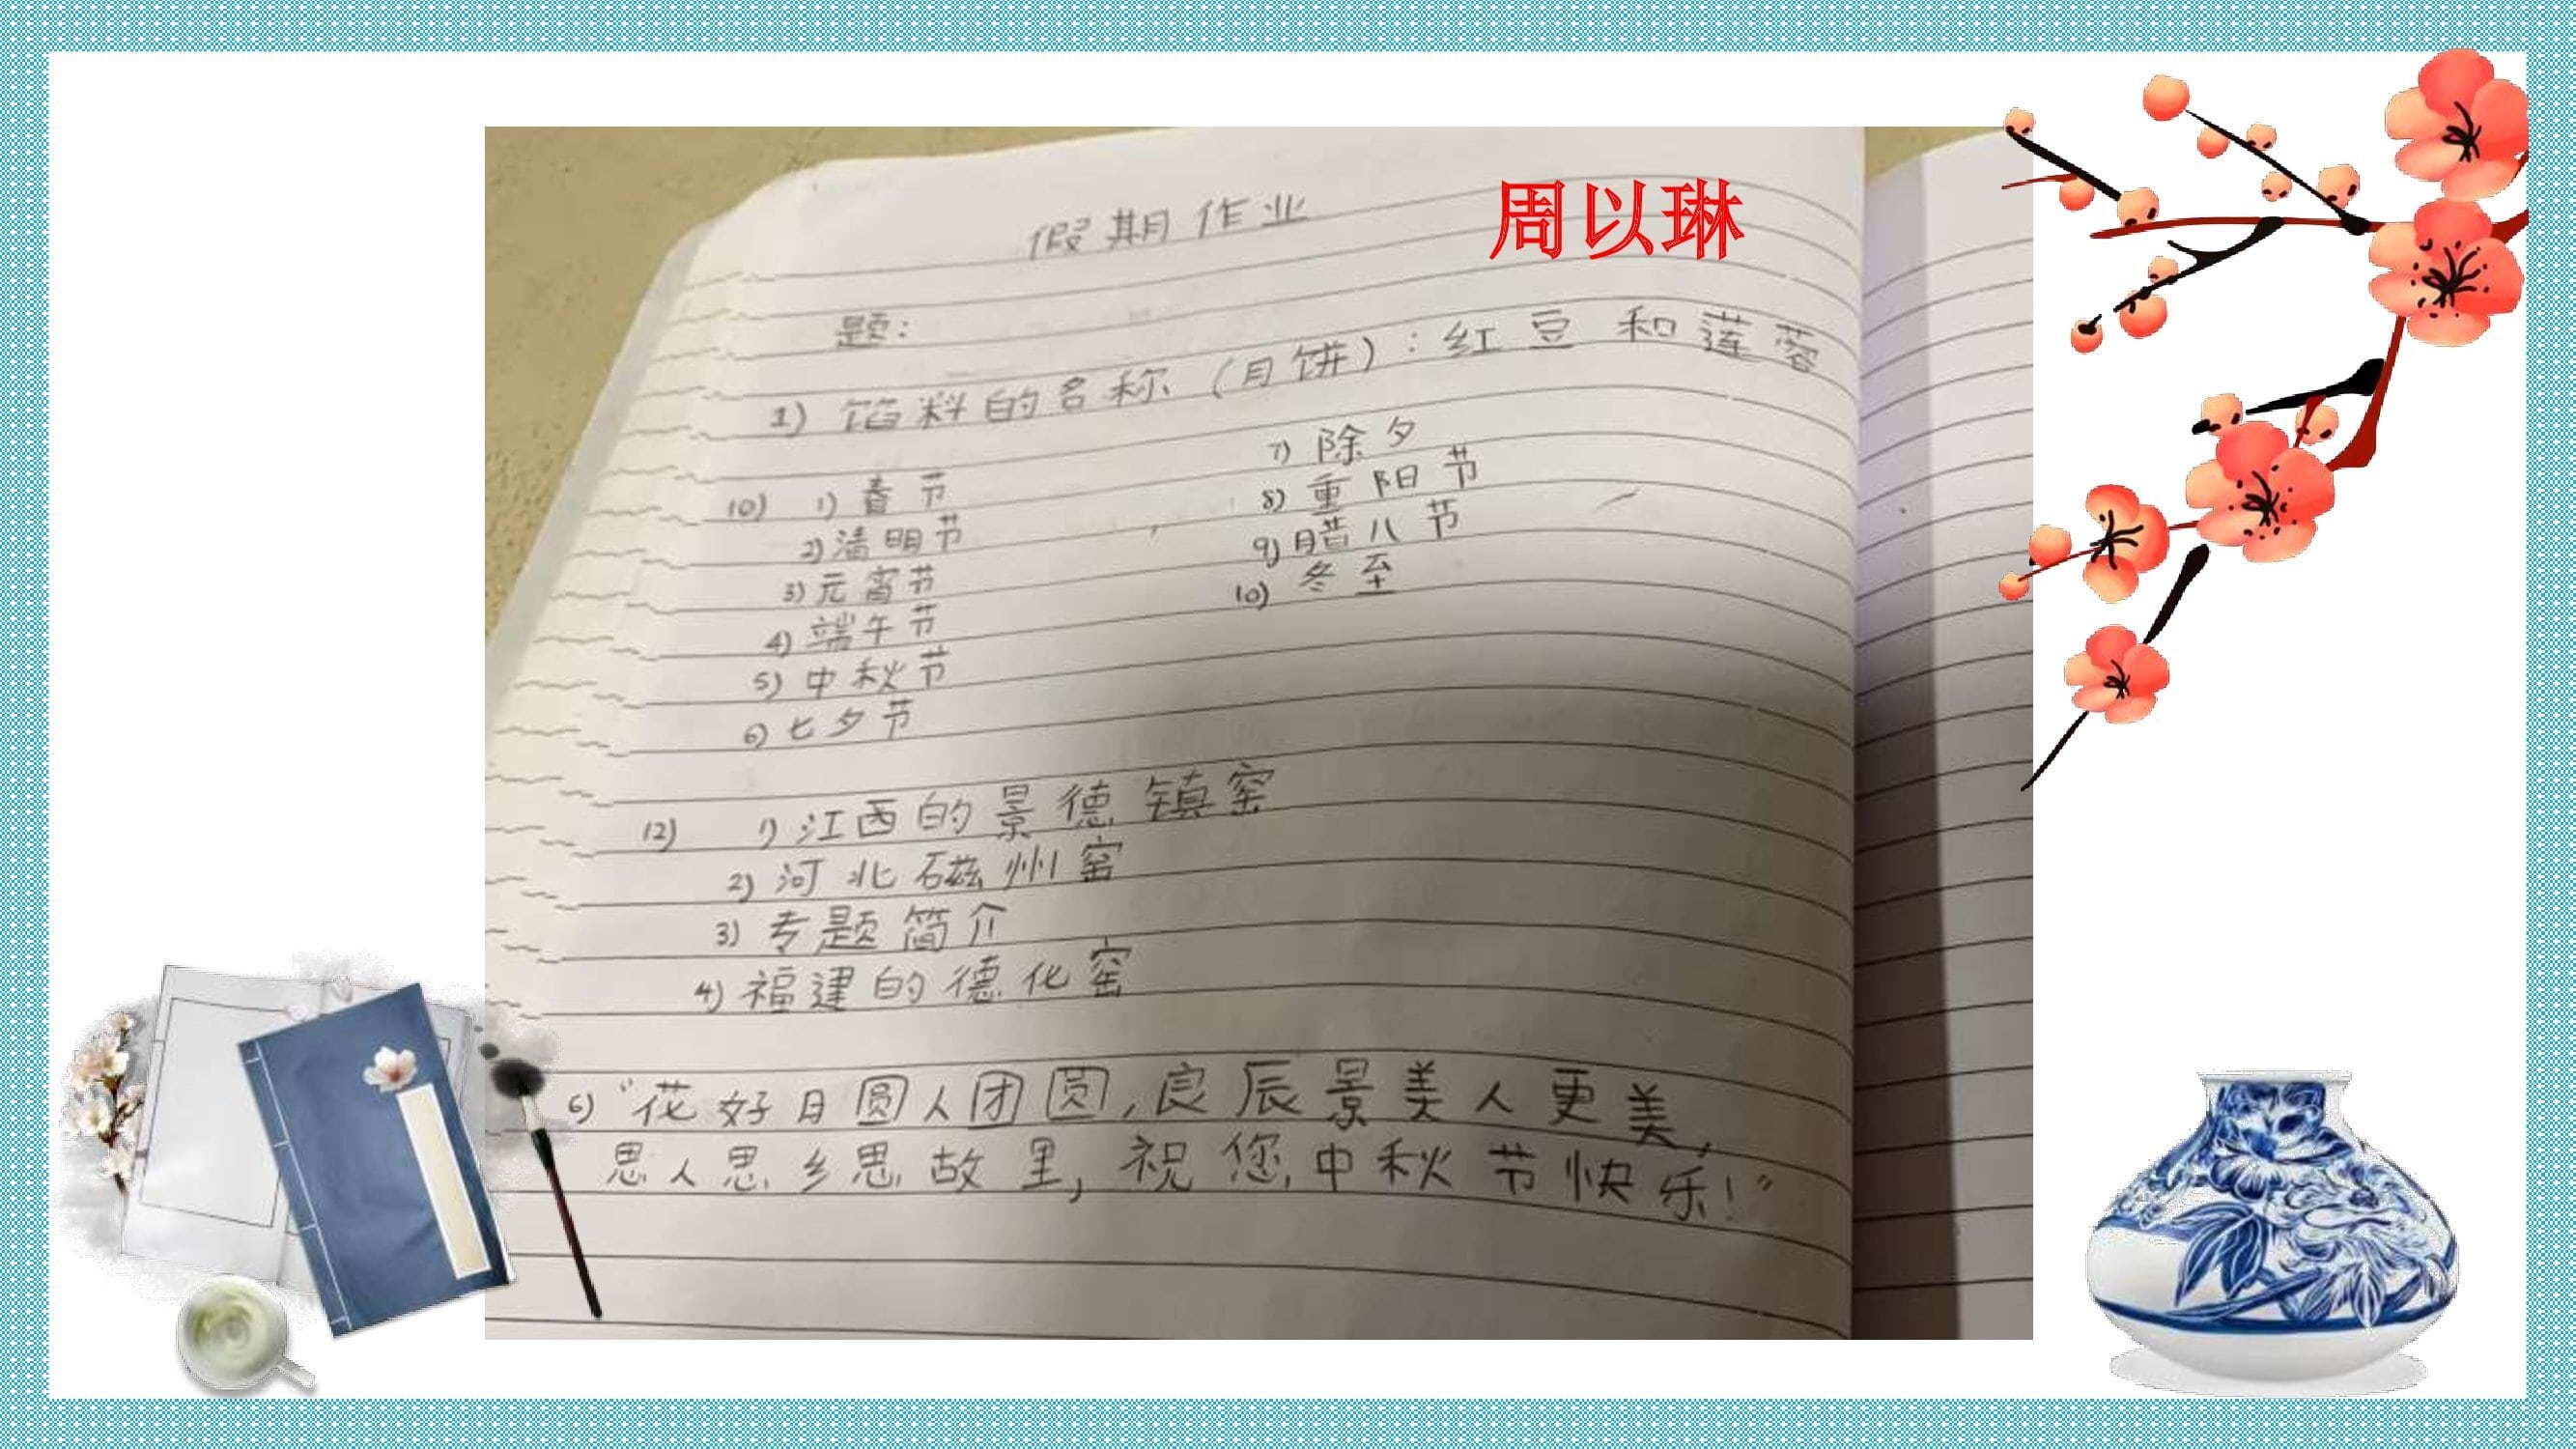 假期作业
周以琳
题：
1) 馅料的名称 (月饼)：红豆 和莲蓉
10) 1) 春节
2) 清明节
3) 元宵节
4) 端午节
5) 中秋节
6) 七夕节
7) 除夕
8) 重阳节
9) 腊八节
10) 冬至
12) 1) 江西的景德镇窑
2) 河北磁州窑
3) 专题简介
4) 福建的德化窑
6) “花好月圆人团圆，良辰景美人更美，
思人思乡思故里，祝您中秋节快乐！”